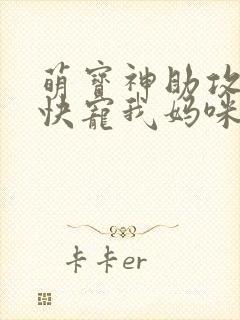 萌寶神助攻
快寵我媽咪
卡卡er